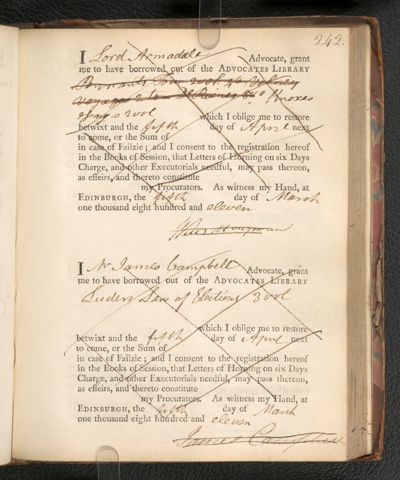 242.
I Lord Armadale Advocate, grant
me to have borrowed out of the ADVOCATES LIBRARY
Knoxes
Essays 2 vol which I oblige me to restore
betwixt and the fifth day of April next
to come, or the Sum of
in case of Failzie; and I consent to the registration hereof
in the Books of Session, that Letters of Horning on six Days
Charge, and other Executorials needful, may pass thereon,
as effeirs, and thereto constitute
my Procurators. As witness my Hand, at
EDINBURGH, the fifth day of March
one thousand eight hundred and eleven
I Mr James Campbell Advocate, grant
me to have borrowed out of the ADVOCATES LIBRARY
Luders Law of Elections 3 vol
which I oblige me to restore
betwixt and the fifth day of April next
to come, or the Sum of
in case of Failzie; and I consent to the registration hereof
in the Books of Session, that Letters of Horning on six Days
Charge, and other Executorials needful, may pass thereon,
as effeirs, and thereto constitute
my Procurators. As witness my Hand, at
EDINBURGH, the fifth day of March
one thousand eight hundred and eleven
James Campbell